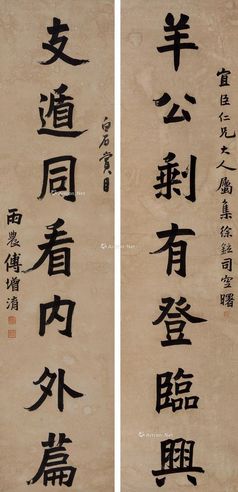 宜臣仁兄大人屬集徐鉉司空曙
羊公剩有登臨興
支遁同看内外篇
白石賞目
雨農傅增淯